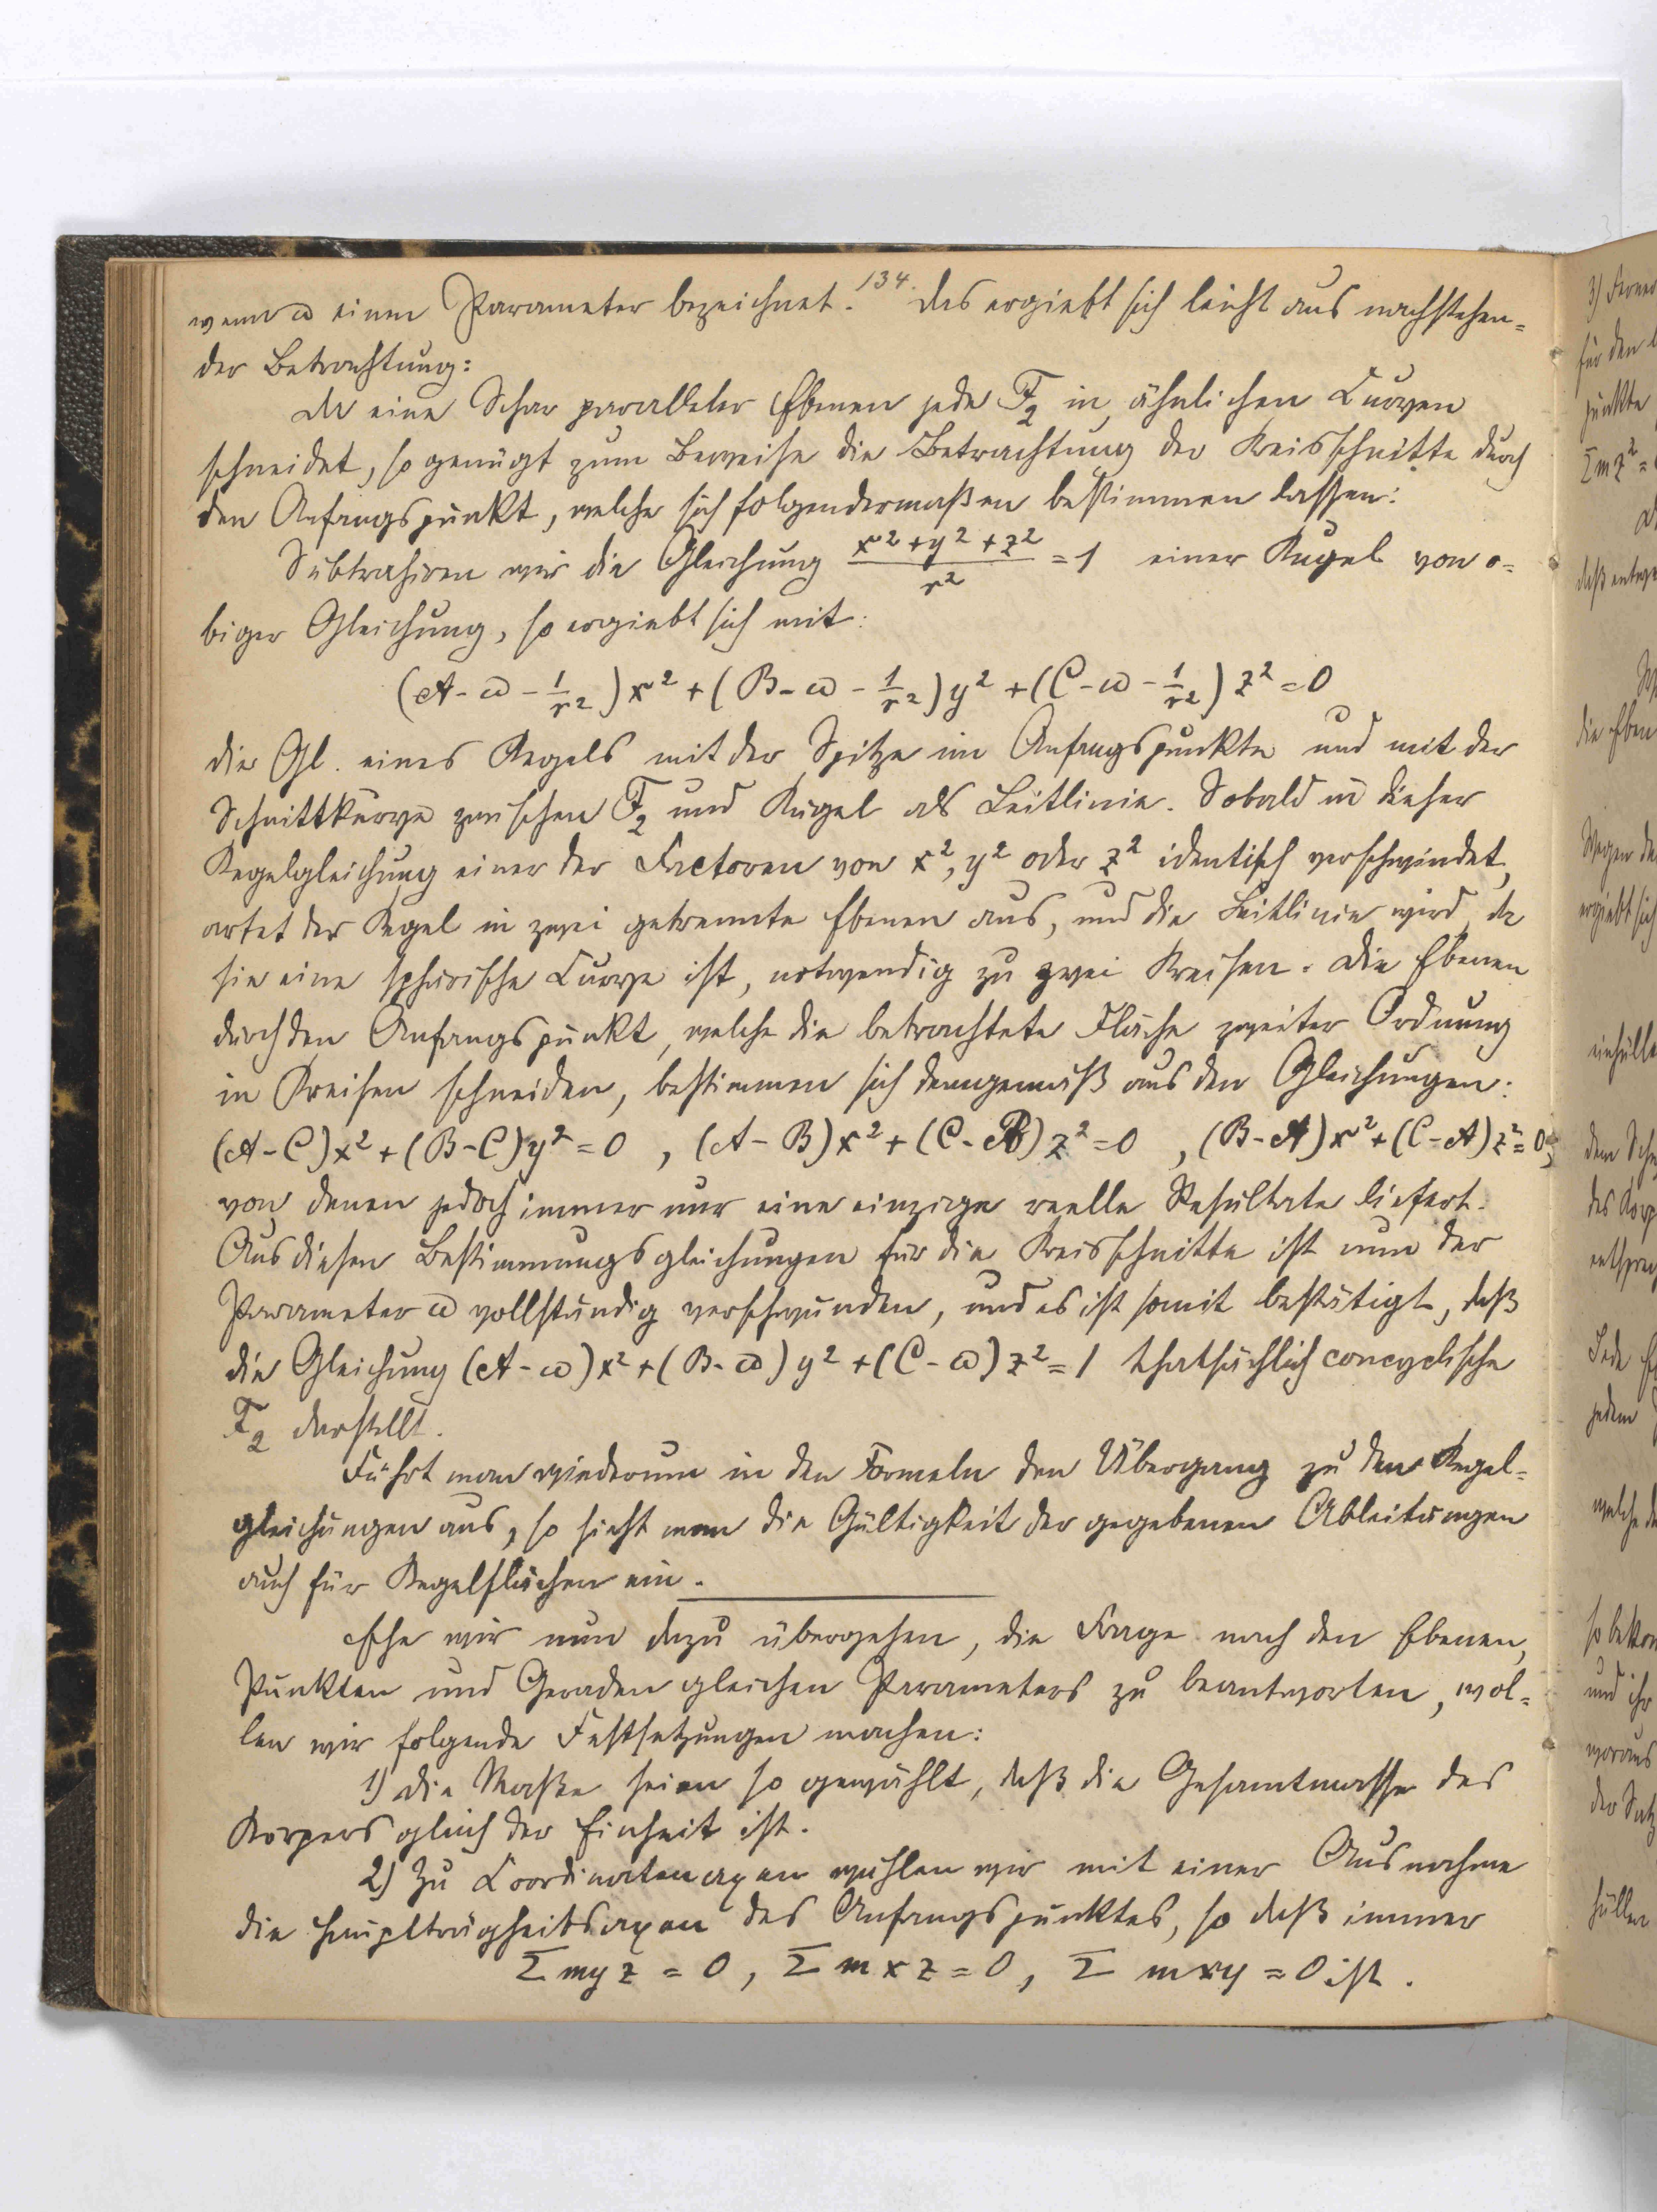 134.
wenn ω einen Parameter bezeichnet. Das ergiebt sich leicht aus nachstehen=
der Betrachtung:
Da eine Schar paralleler Ebenen jede F₂ in ähnlichen Curven
schneidet, so genügt zum Beweise die Betrachtung der Kreisschnitte durch
den Anfangspunkt, welche sich folgendermaßen bestimmen lassen:
Subtrahiren wir die Gleichung (x²+y²+z²)/r² = 1 einer Kugel von o=
biger Gleichung, so ergiebt sich mit:
(A-ω-1/r²)x² + (B-ω-1/r²)y² + (C-ω-1/r²)z² = 0
die Gl. eines Kegels mit der Spitze im Anfangspunkte und mit der
Schnittkurve zwischen F₂ und Kugel als Leitlinie. Sobald in dieser
Kegelgleichung einer der Factoren von x², y² oder z² identisch verschwindet,
artet der Kegel in zwei getrennte Ebenen aus, und die Leitlinie wird, da
sie eine sphärische Curve ist, notwendig zu zwei Kreisen. Die Ebenen
durch den Anfangspunkt, welche die betrachtete Fläche zweiter Ordnung
in Kreisen schneiden, bestimmen sich demgemäß aus den Gleichungen:
(A-C)x² + (B-C)y² = 0 , (A-B)x² + (C-B)z² = 0 , (B-A)x² + (C-A)z² = 0,
von denen jedoch immer nur eine einzige reelle Resultate liefert.
Aus diesen Bestimmungsgleichungen für die Kreisschnitte ist nun der
Parameter ω vollständig verschwunden, und es ist somit bestätigt, daß
die Gleichung (A-ω)x² + (B-ω)y² + (C-ω)z² = 1 thatsächlich concyclische
F₂ darstellt.
Führt man wiederum in den Formeln den Übergang zu den Kegel=
gleichungen aus, so sieht man die Gültigkeit der gegebenen Ableitungen
auch für Kegelflächen ein.
Ehe wir nun dazu übergehen, die Frage nach den Ebenen,
Punkten und Geraden gleichen Parameters zu beantworten, wol=
len wir folgende Festsetzungen machen:
1) Die Maße seien so gewählt, daß die Gesamtmasse des
Körpers gleich der Einheit ist.
2) Zu Coordinatenaxen wählen wir mit einer Ausnahme
die Hauptträgheitsaxen des Anfangspunktes, so daß immer
Σmyz = 0, Σmxz = 0, Σmxy = 0 ist.
3) Ferner
für den
punkte
Σmz² =
die Eben
Wegen de
ergiebt sich
einhülle
dem
des Körp
entsprec
Jede
jedem
welche
und ihr
woraus
der Satz
hüllen